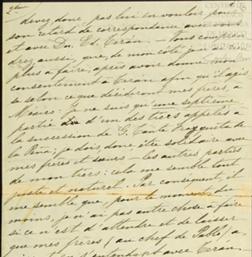 devez donc pas lui en vouloir de
son retard de correspondance avec vous
et avec Dn. Ed. Terán. — Vous compren
drez aussi, que, de mon côté, je n'ai rien
plus à faire, après avoir donné mon
consentement à Terán afin qu'il agis
se selon ce que décideront mes frères, à
Je ne suis qu'une septième
partie d'un des tiers appelés à
la succession de G.
je dois donc être solidaire avec
mes frères et sœurs — les autres parties
de mon tiers: cela me semble tout
juste et naturel. Par conséquent, il
me semble que, pour le moment du
moins, je n'ai pas autre chose à faire
si ce n'est d'attendre et de laisser
que mes frères (au chef de Pablo), a
Terán.